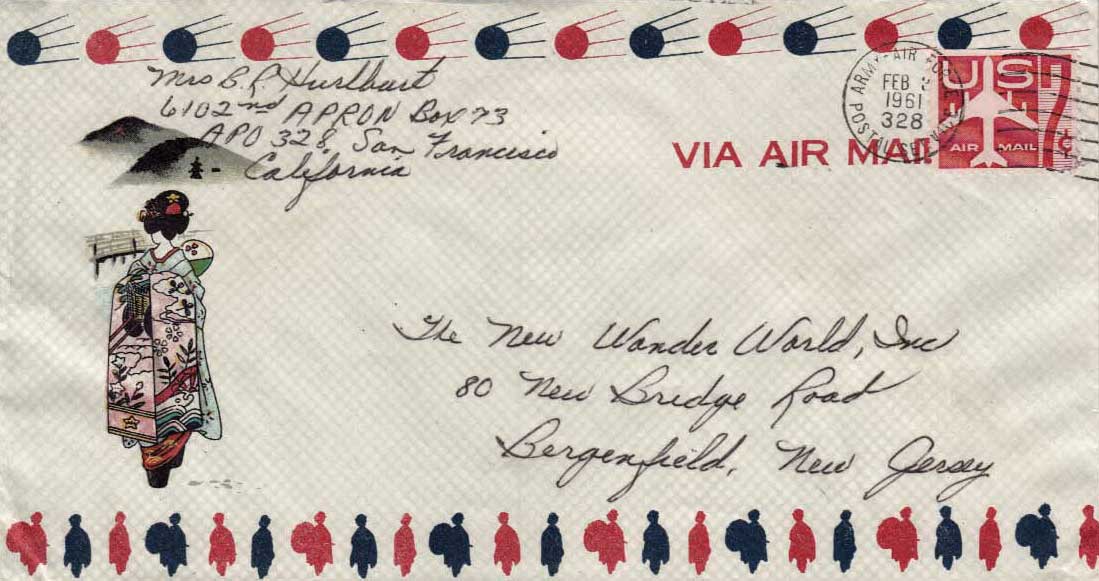 Mrs B. R. Hurlbart
6102nd APRON Box 73
APO 328, San Francisco
California
VIA AIR MAIL
ARMY-AIR FOR
FEB
1961
328
POSTAL SERVICE
US
7¢
AIR MAIL
The New Wonder World, Inc
80 New Bridge Road
Bergenfield, New Jersey